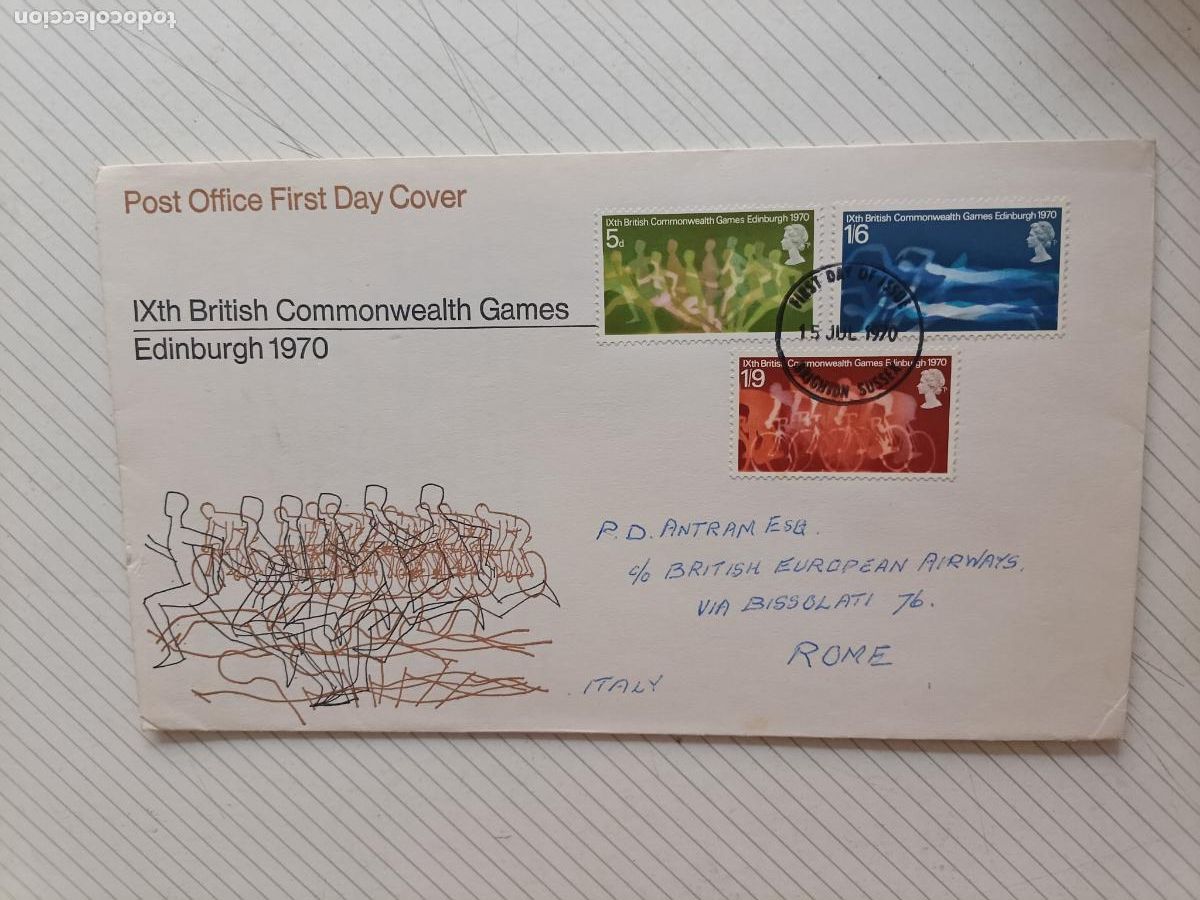 todocoleccion
Post Office First Day Cover
IXth British Commonwealth Games
Edinburgh 1970
IXth British Commonwealth Games Edinburgh 1970
5d
IXth British Commonwealth Games Edinburgh 1970
1/6
FIRST DAY OF ISSUE
15 JUL 1970
BRIGHTON SUSSEX
IXth British Commonwealth Games Edinburgh 1970
1/9
P. D. ANTRAM ESQ.
c/o BRITISH EUROPEAN AIRWAYS,
VIA BISSOLATI 76.
ROME
ITALY